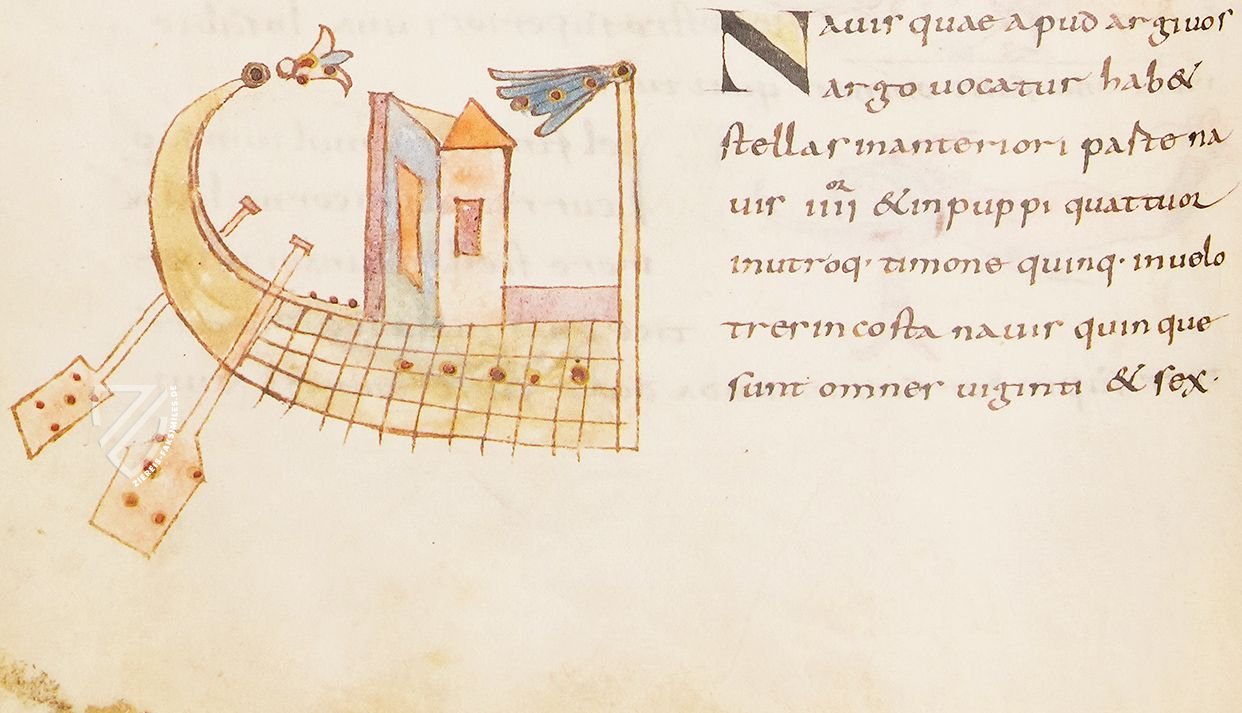 Nauis quae apud argiuos
argo uocatur hab&
stellas inanteriori paste na
uis iiii or & inpuppi quattuor
inutroq· timone quinq· inuelo
tres in costa nauis quinque
sunt omnes uiginti & sex·
ZIEREIS-FAKSIMILES.DE